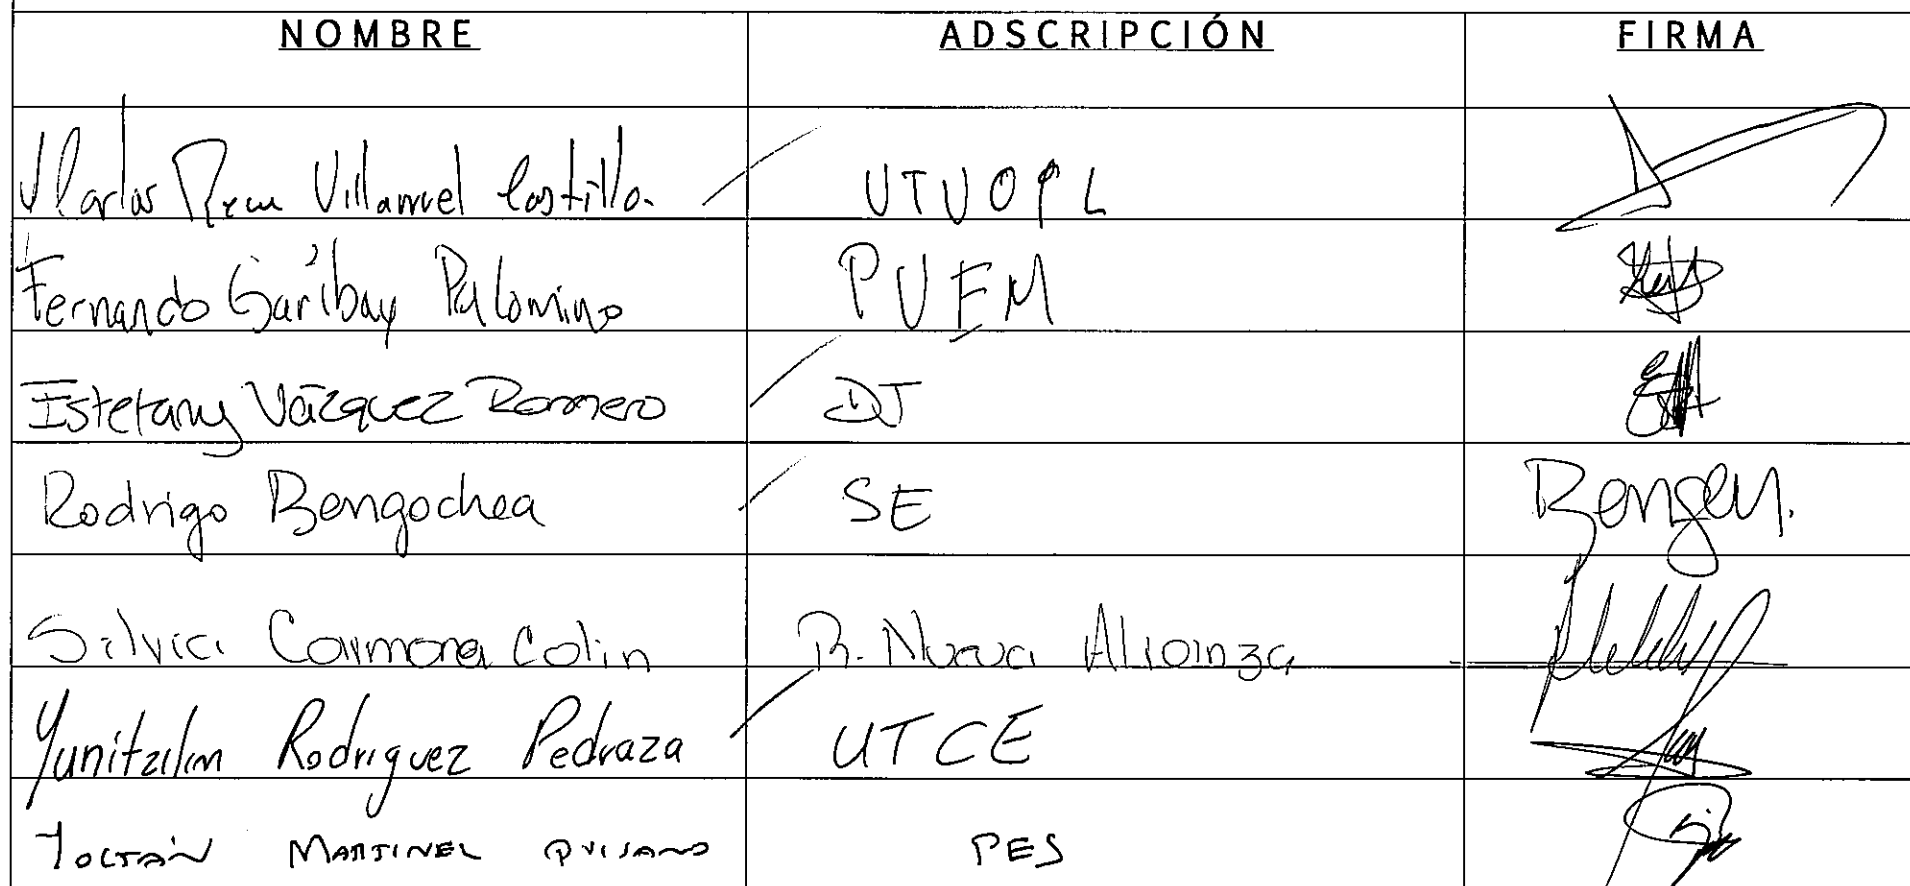 NOMBRE ADSCRIPCIÓN FIRMA
Villarruel Castillo. UTVOPL
Fernando Garibay Palomino PVEM
Estefany Vázquez Romero DJ
Rodrigo Bengochea SE
Silvia Carmona Colin R. Nueva Alianza
Yunitzilim Rodriguez Pedraza UTCE
MARTINEZ PES